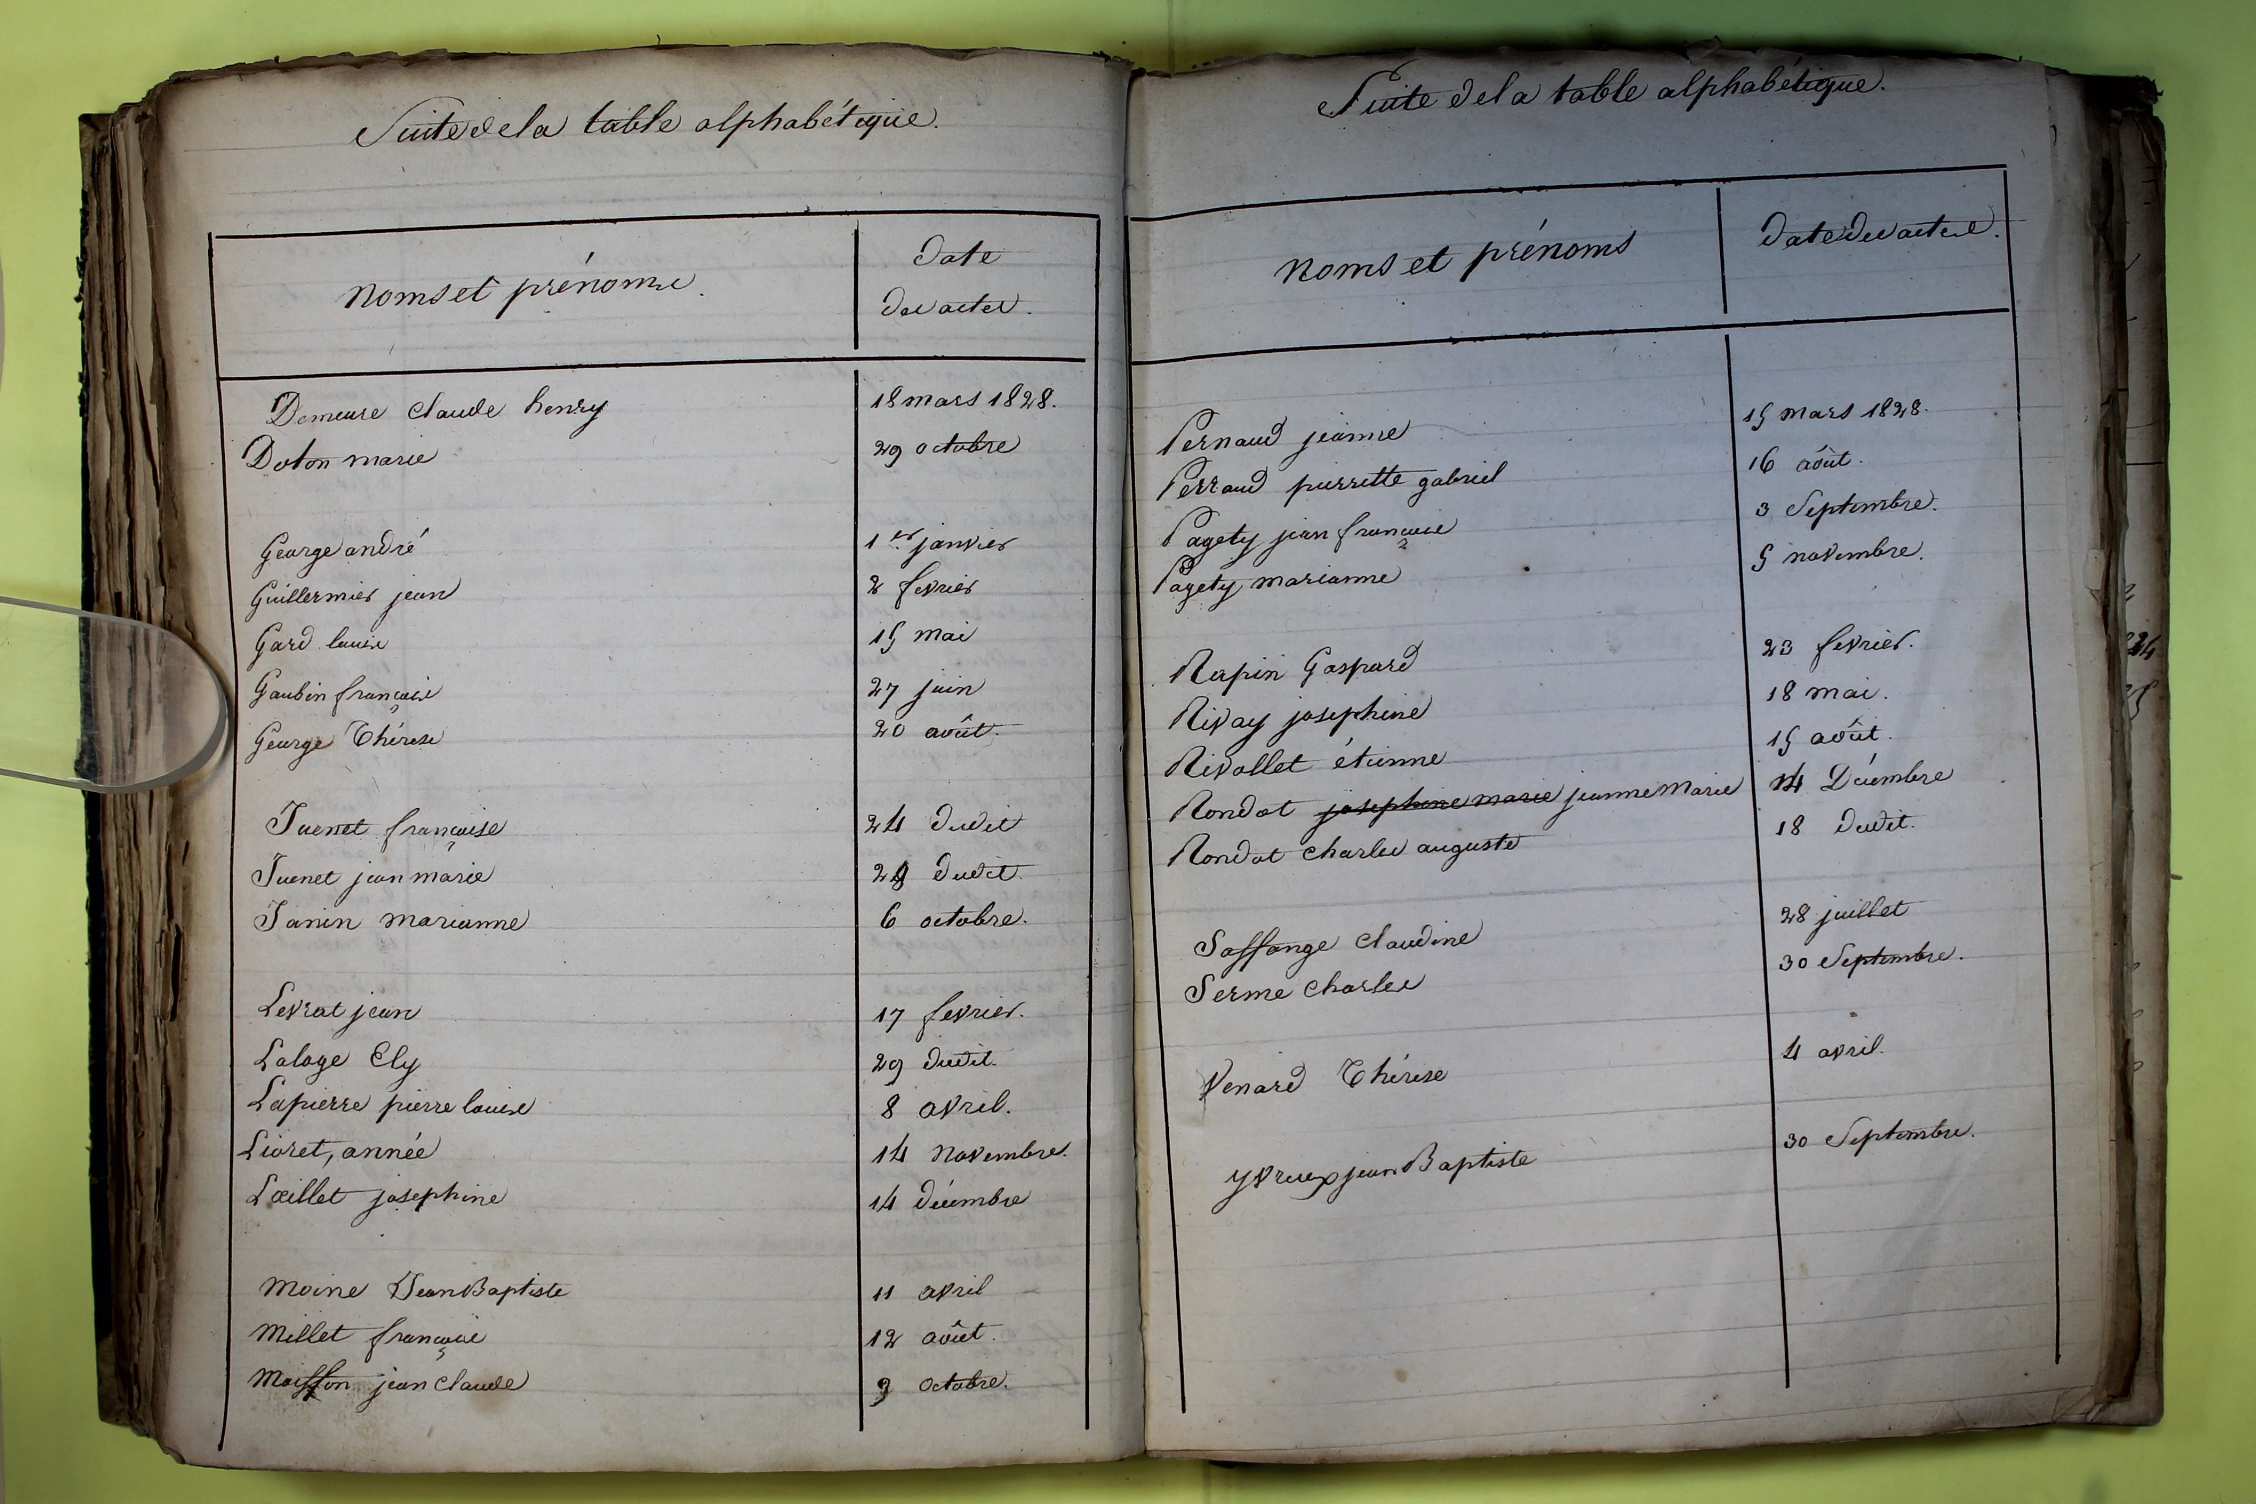 Suite de la table alphabétique.
noms et prénoms.
date
des actes.
Demeure claude henry 18 mars 1828.
Doton marie 29 octobre
George andré 1er janvier
Guillermier jean 2 fevrier
Gard louise 15 mai
Gaubin françois 27 juin
George Thérese 20 août.
Juenet françoise 24 dudit
Juenet jean marie 29 dudit.
Janin marianne 6 octobre.
Levrat jean 17 fevrier.
Laloge Ely 29 dudit.
Lapierre pierre louis 8 avril.
Lioret, année 14 novembre.
Lœillet josephine 14 décembre
moine Jean Baptiste 11 avril
millet françois 12 août.
moisson jean claude 9 octobre.
Suite de la table alphabétique.
noms et prénoms
date des actes.
Pernaud jeanne 15 mars 1828.
Perraud pierrette gabriel 16 août.
Pagety jean françois 3 Septembre.
Pagety marianne 5 novembre.
Rapin Gaspard 23 fevrier.
Rivay josephine 18 mai.
Rivollet étienne 15 août.
Rondot josephine marie jeanne Marie 14 Décembre
Rondot charles auguste 18 dudit.
Saffange claudine 28 juillet
Serme charles 30 Septembre.
Venard Thérese 4 avril.
yvreux jean Baptiste 30 Septembre.